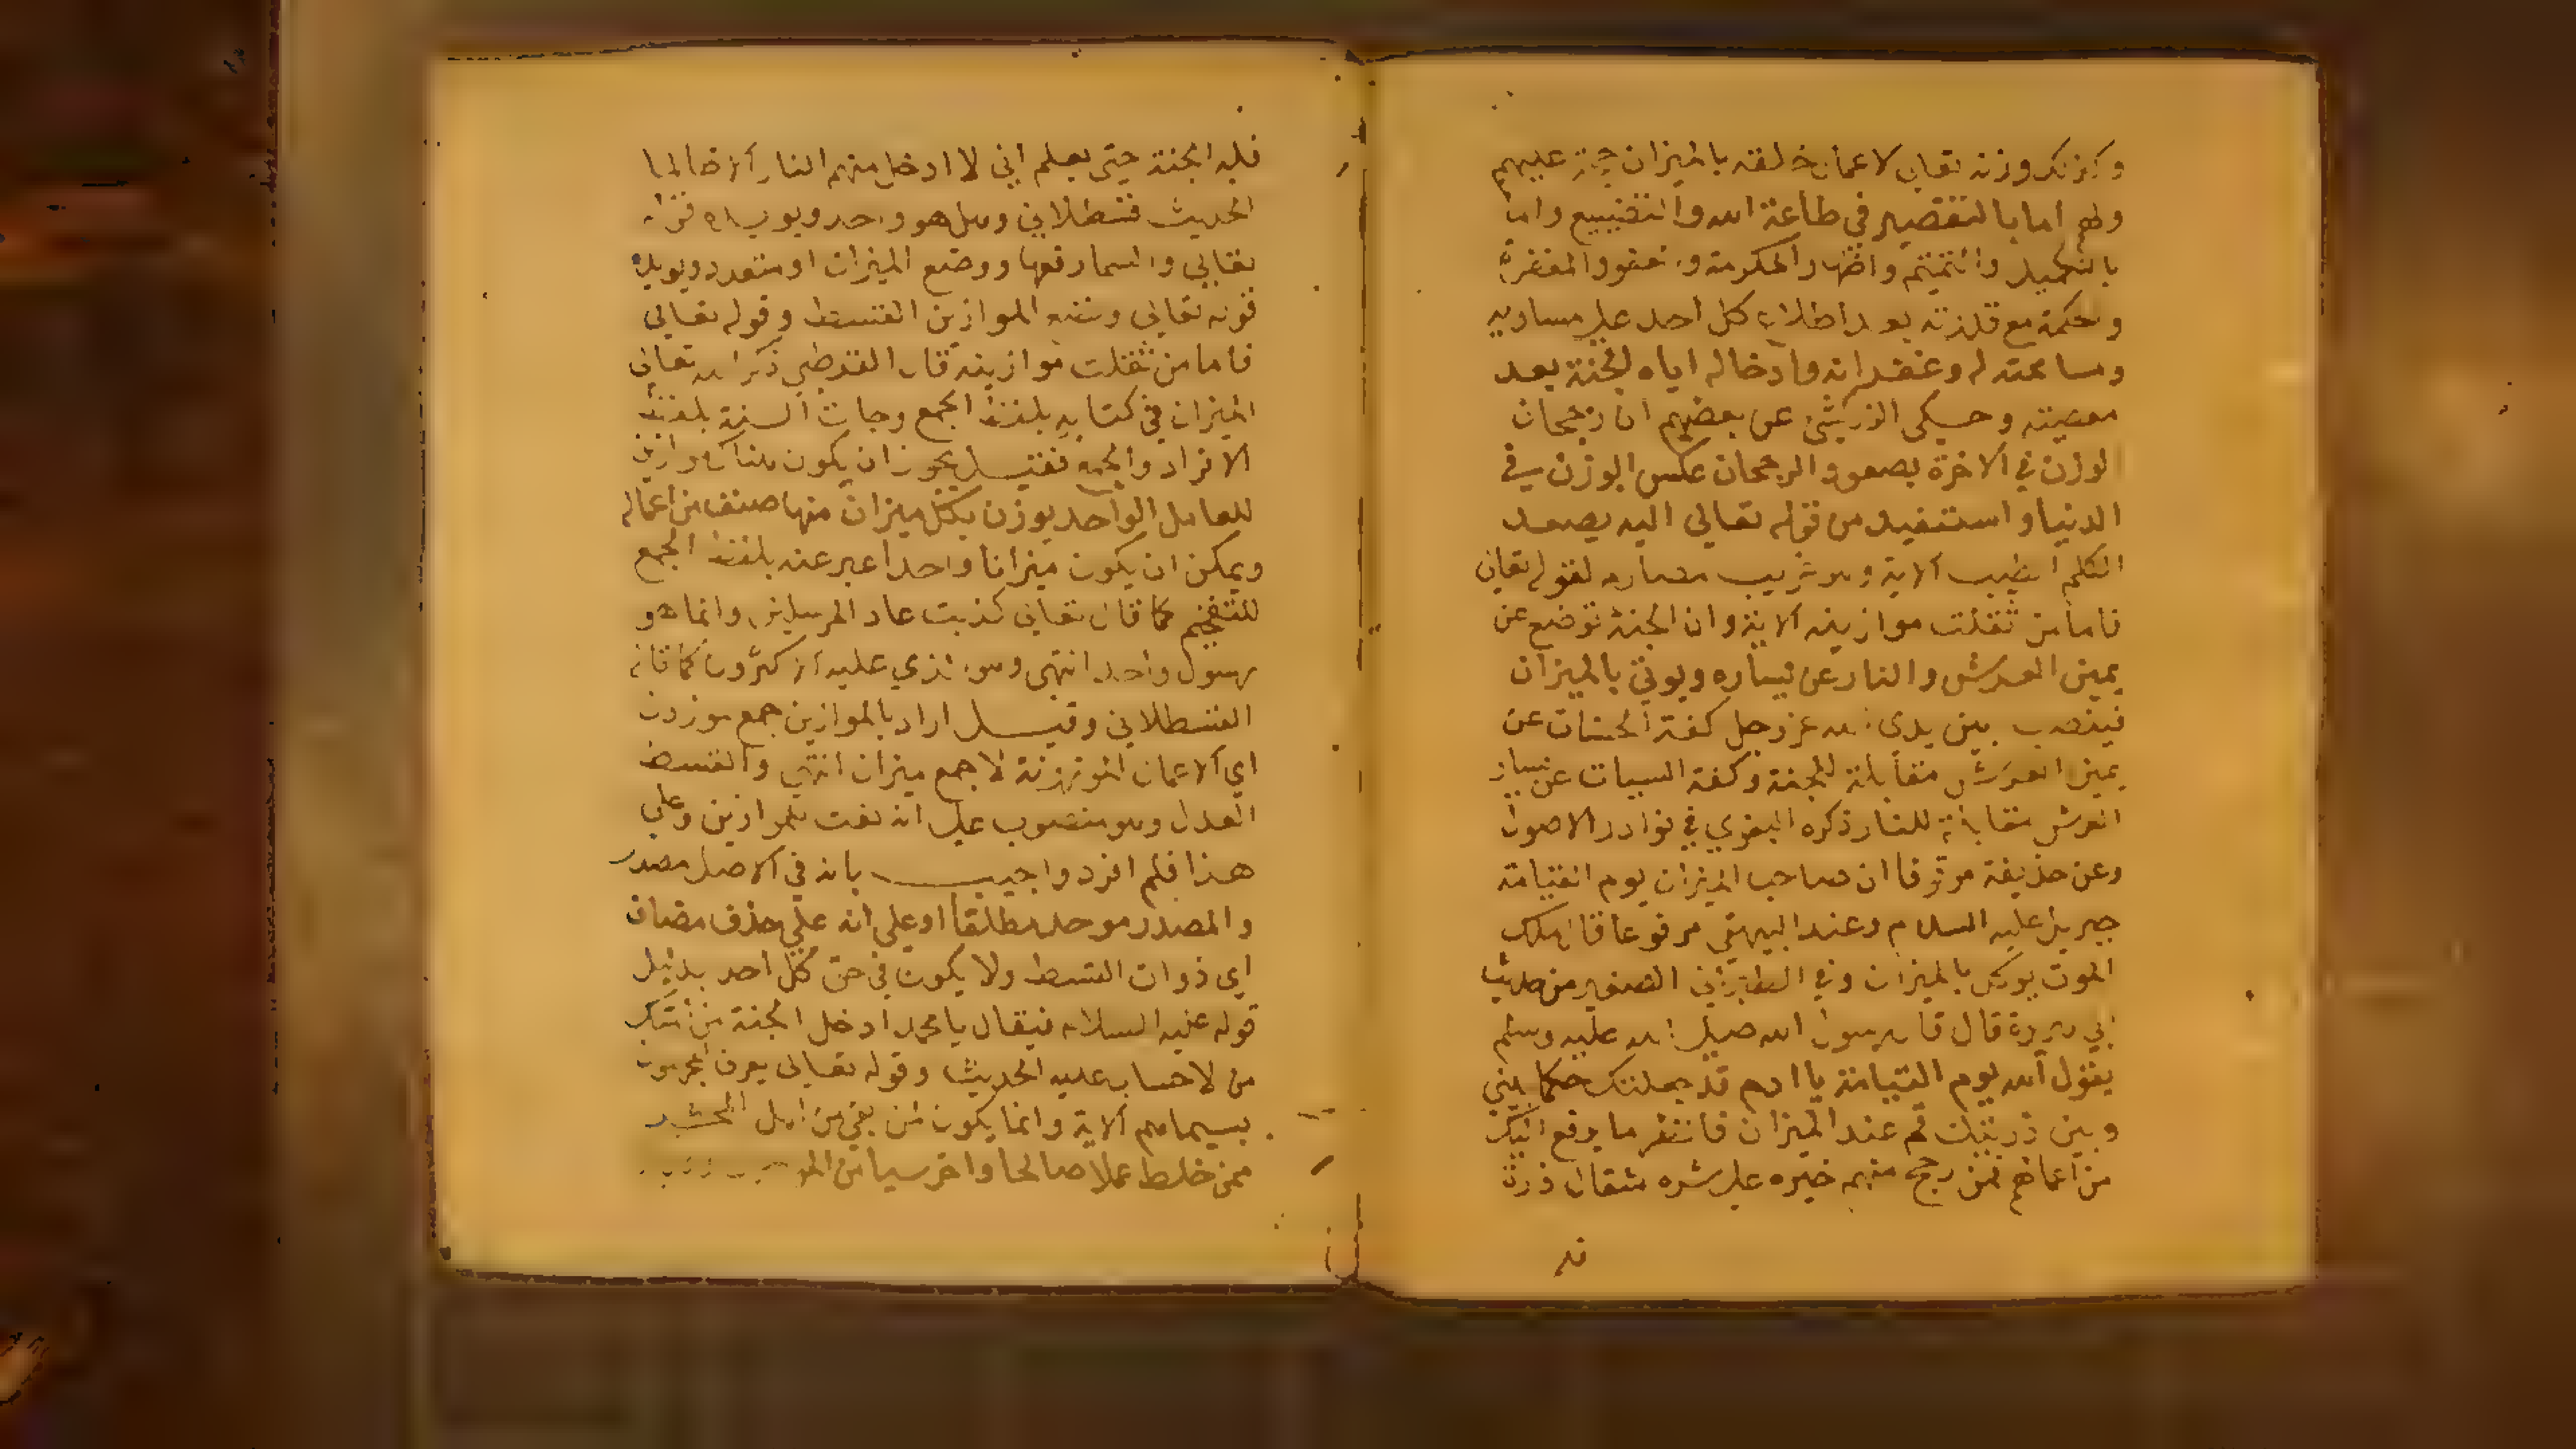 وكذلك وزنه تعالى لاعمال خلقه بالميزان حجة عليهم
ولهم اما بالتقصير في طاعة الله والتضييع واما
بالتكميل والتتميم واظهار الكرمه والعفو والمغفرة
والحكمة مع قدرته بعد اطلاع كل احد على مساويه
ومسامحته له وغفرانه وادخاله اياه الجنة بعد
معصيته وحكى الزركشي عن بعضهم ان رجحان
الوزن في الاخرة بصعود الرجحان عكس الوزن في
الدنيا واستفيد من قوله تعالى اليه يصعد
الكلم الطيب الاية وهو غريب مصادم لقوله تعالى
فاما من ثقلت موازينه الاية وان الجنة توضع عن
يمين العرش والنار عن يساره ويوتى بالميزان
فينصب بين يدى الله عز وجل كفة الحسنات عن
يمين العرش مقابلة للجنة وكفة السيات عن يسار
العرش مقابلة للنار ذكره في نوادر الاصول
وعن حذيفة موقوفا ان صاحب الميزان يوم القيامة
جبريل عليه السلام وعند البيهقي مرفوعا قال ملك
الموت يوكل بالميزان وفي الطبراني الصغير من حديث
ابي هريرة قال قال رسول الله صلى الله عليه وسلم
يقول الله يوم القيامة يا ادم قد جعلتك حكما بيني
وبين ذريتك قم عند الميزان فانظر ما يرفع اليك
من اعمالهم فمن رجح منهم خيره على شره مثقال ذرة
فله
فله الجنة حتى يعلم اني لا ادخل منهم النار الا ظالما
الحديث قسطلاني وهل هو واحد ويويده قوله
تعالى والسما رفعها ووضع الميزان او متعدد ويويده
قوله تعالى ونضع الموازين القسط وقوله تعالى
فاما من ثقلت موازينه قال القرطبي ذكر الله تعالى
الميزان في كتابه بلفظ الجمع وجات السنة بلفظ
الافراد والجمع فقيل يجوز ان يكون هناك موازين
للعامل الواحد يوزن بكل ميزان منها صنف من اعماله
ويمكن ان يكون ميزانا واحدا عبر عنه بلفظ الجمع
للتفخيم كما قال تعالى كذبت عاد المرسلين وانما هو
رسول واحد انتهى وهو الذي عليه الاكثرون كما قاله
القسطلاني وقيل اراد بالموازين جمع موزون
اي الاعمال الموزونة لا جمع ميزان انتهى والقسط
العدل وهو منصوب على انه نعت للموازين وعلى
هذا فلم افرد واجيب بانه في الاصل مصدر
والمصدر موحد مطلقا او على انه على حذف مضاف
اي ذوات القسط ولا يكون في حق كل احد بدليل
قوله عليه السلام فيقال يا محمد ادخل الجنة من امتك
من لا حساب عليه الحديث وقوله تعالى يعرف المجرمون
بسيماهم الاية وانما يكون لمن بقي من اهل المحشر
ممن خلط عملا صالحا واخر سيا من